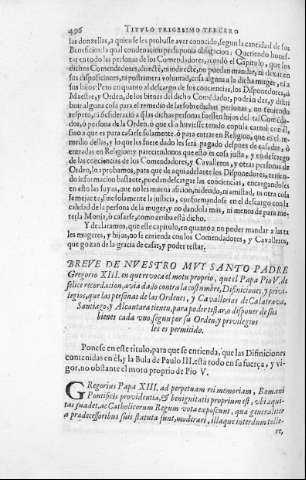 496 TITVLO TRIGESIMO TERCERO
las donzellas, a quien se les prouasse auer conocido, segun la cantidad de sus
tar en todo las personas de los Comendadores,
dichos Comendadores, directè, ni indirectè, no puedan mandar, ni dexar en
sus disposiciones, ni postrimera voluntad, cosa alguna a la dicha muger, ni a
sus hijos: Pero en quanto al descargo de sus conciencias, los Disponedores, ò
Maestre, y Orden, de los bienes del dicho Comendador, podrà dar, y distri
buir alguna cosa para el remedio de las sobredichas personas, no teniendo
respeto, ni consideracion si las dichas personas fuessen hijos del tal Comenda-
dor, ò persona de la Orden, ò que el si huuiesse tenido copula carnal con él,
sino a que es para casarse solamente, ò para entrar en Religion, que es el re-
medio dellos, y lo que les fuere dado les serà pagado despues de casados, ò
entradas en Religion: y pareciendonos que esto es cosa justa, y en descargo
de las conciencias de los Comendadores, y Caualleros, y otras personas de
Orden, lo aprobamos, para que de aqui adelante los Disponedores, tenien-
do informacion bastante, puedan descargar las conciencias, encargandoles
en esto las suyas, que no les mueua aficion, ni deudo, ni amistad, ni otra cosa
semejante, si no solamente la justicia, conformandose en el descargo con la
calidad de la persona de la muger, y no dandola mas, ni menos de para me-
terla Monja, ò casarse, como arriba està dicho.
Y declaramos, que este capitulo, en quanto a no poder mandar a las ta
les mugeres, y hijos, no se entienda con los Comendadores, y Caualleros,
que gozan de la gracia de casar, y poder testar.
BREVE DE NVESTRO MVY SANTO PADRE
Gregorio XIII. en que reuoca el motu proprio, que el Papa Pio V. de
felice recordacion, auia dado contra la costumbre, Difiniciones, y priui-
legios, que las personas de las Ordenes, y Cauallerias de Calatraua,
Santiago, y Alcantara tienen, para poder testar, ò disponer de sus
bienes cada vno segun por su Orden, y priuilegios
les es permitido.
Ponese en este titulo, para que se entienda, que las Difiniciones
contenidas en él, y la Bula de Paulo III. està todo en su fuerça, y vi-
gor, no obstante el motu proprio de Pio V.
GRegorius Papa XIII. ad perpetuam rei memoriam, Romani
Pontificis prouidentia, & benignitatis proprium est, vbi aqui-
tas suadet, ac Catholicorum Regum vota exposcunt, qua generaliter
a prædecessoribus suis statuta sunt, moderari, illaque interdum tolle-
re,